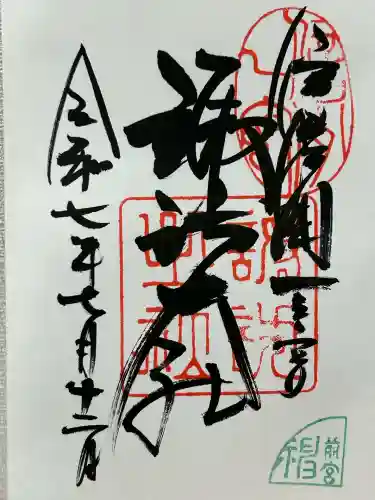 信濃國一之宮
諏訪大社
令和七年七月十二日
前宮